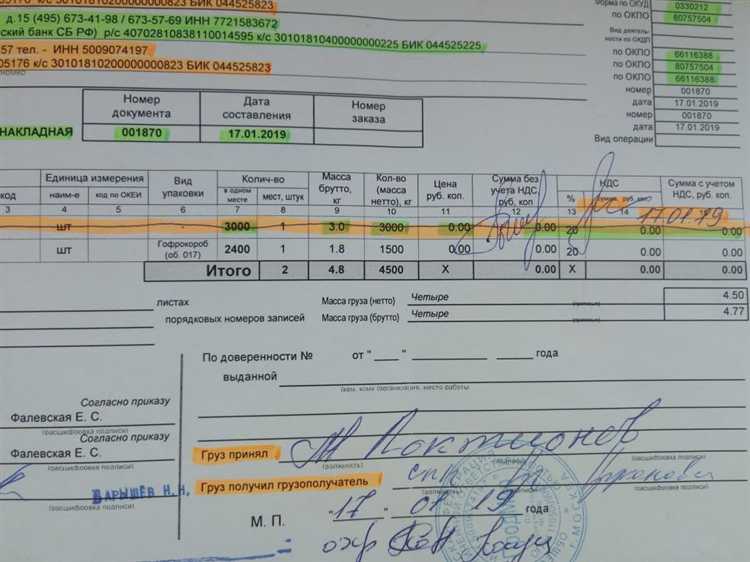 05176 к/с 30101810200000000823 БИК 044525823
д.15 (495) 673-41-98 / 673-57-69 ИНН 7721583672
ский банк СБ РФ) р/с 40702810838110014595 к/с 30101810400000000225 БИК 044525225
57 тел. - ИНН 5009074197
05176 к/с 30101810200000000823 БИК 044525823
Форма по ОКУД 0330212
по ОКПО 80757504
Вид деятель-
ности по ОКДП
по ОКПО 66116388
по ОКПО 80757504
по ОКПО 66116388
номер 001870
дата 17.01.2019
номер 001870
дата 17.01.2019
Вид операции
Номер документа Дата составления Номер заказа
НАКЛАДНАЯ 001870 17.01.2019
код Единица измерения Вид упаковки Колич-во Масса брутто, кг Кол-во (масса нетто), кг Цена руб. коп. Сумма без учета НДС, руб. коп. НДС Сумма с учетом НДС, руб. коп.
наим-е код по ОКЕИ в одном месте мест, штук %
3 4 5 6 7 8 9 10 11 12 13 14
17.01.19
шт - 3000 1 3.0 3000 0.00 20 0.00 0.00
шт Гофрокороб (об. 017) 2400 1 1.8 1500 0.00 0.00 20 0.00 0.00
Итого 2 4.8 4500 X 0.00 X 0.00 0.00
листах Масса груза (нетто) Четыре 4.50
порядковых номеров записей Масса груза (брутто) Четыре 4.77
По доверенности № от "__" года
выданной
(кем, кому (организация, место работы
Согласно приказу
Фалевская Е. С.
(расшифровка подписи)
Согласно приказу
Фалевская Е. С.
(расшифровка подписи)
Груз принял
(должность)
БАРЫШЕВ Н.Н.
(расшифровка подписи)
Груз получил грузополучатель
М. П. "17" 01 19 года